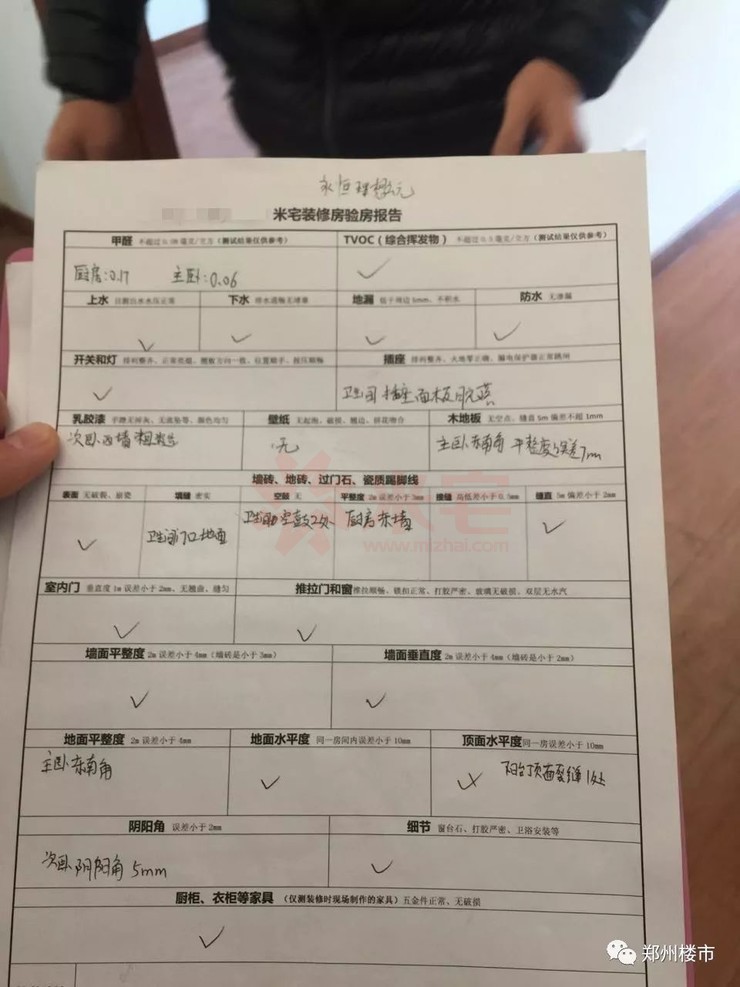 永恒理想公元
米宅装修房验房报告
甲醛 不超过0.08毫克/立方（测试结果仅供参考） TVOC（综合挥发物） 不超过0.5毫克/立方（测试结果仅供参考）
厨房:0.17 主卧:0.06 ✓
上水 目测出水水压正常 下水 排水通畅无堵塞 地漏 低于周边5mm、不积水 防水 无渗漏
✓ ✓ ✓ ✓
开关和灯 排列整齐、正常亮熄、翘板方向一致、位置顺手、按压顺畅 插座 排列整齐、火地零正确、漏电保护器正常跳闸
✓ 卫生间插座面板脱落
乳胶漆 手摸无掉灰、无流坠等、颜色均匀 壁纸 无起泡、破损、翘边、拼花吻合 木地板 无空点、缝直5m偏差不超1mm
次卧西墙粗糙 无 主卧东南角平整度误差7mm
墙砖、地砖、过门石、瓷质踢脚线
表面 无破裂、崩瓷 填缝 密实 空鼓 无 平整度 2m误差小于3mm 接缝 高低差小于0.5mm 缝直 5m偏差小于2mm
✓ 卫生间门口地面 卫生间空鼓2处 厨房东墙 ✓
米宅
www.mizhai.com
室内门 垂直度1m误差小于2mm、无翘曲、缝匀 推拉门和窗 推拉顺畅、锁扣正常、打胶严密、玻璃无破损、双层无水汽
✓ ✓
墙面平整度 2m误差小于4mm（墙砖是小于3mm） 墙面垂直度 2m误差小于4mm（墙砖是小于2mm）
✓ ✓
地面平整度 2m误差小于4mm 地面水平度 同一房间内误差小于10mm 顶面水平度 同一房误差小于10mm
主卧东南角 ✓ 阳台顶面裂缝1处
阴阳角 误差小于2mm 细节 窗台石、打胶严密、卫浴安装等
次卧阴阳角5mm ✓
厨柜、衣柜等家具 （仅测装修时现场制作的家具）五金件正常、无破损
✓
郑州楼市